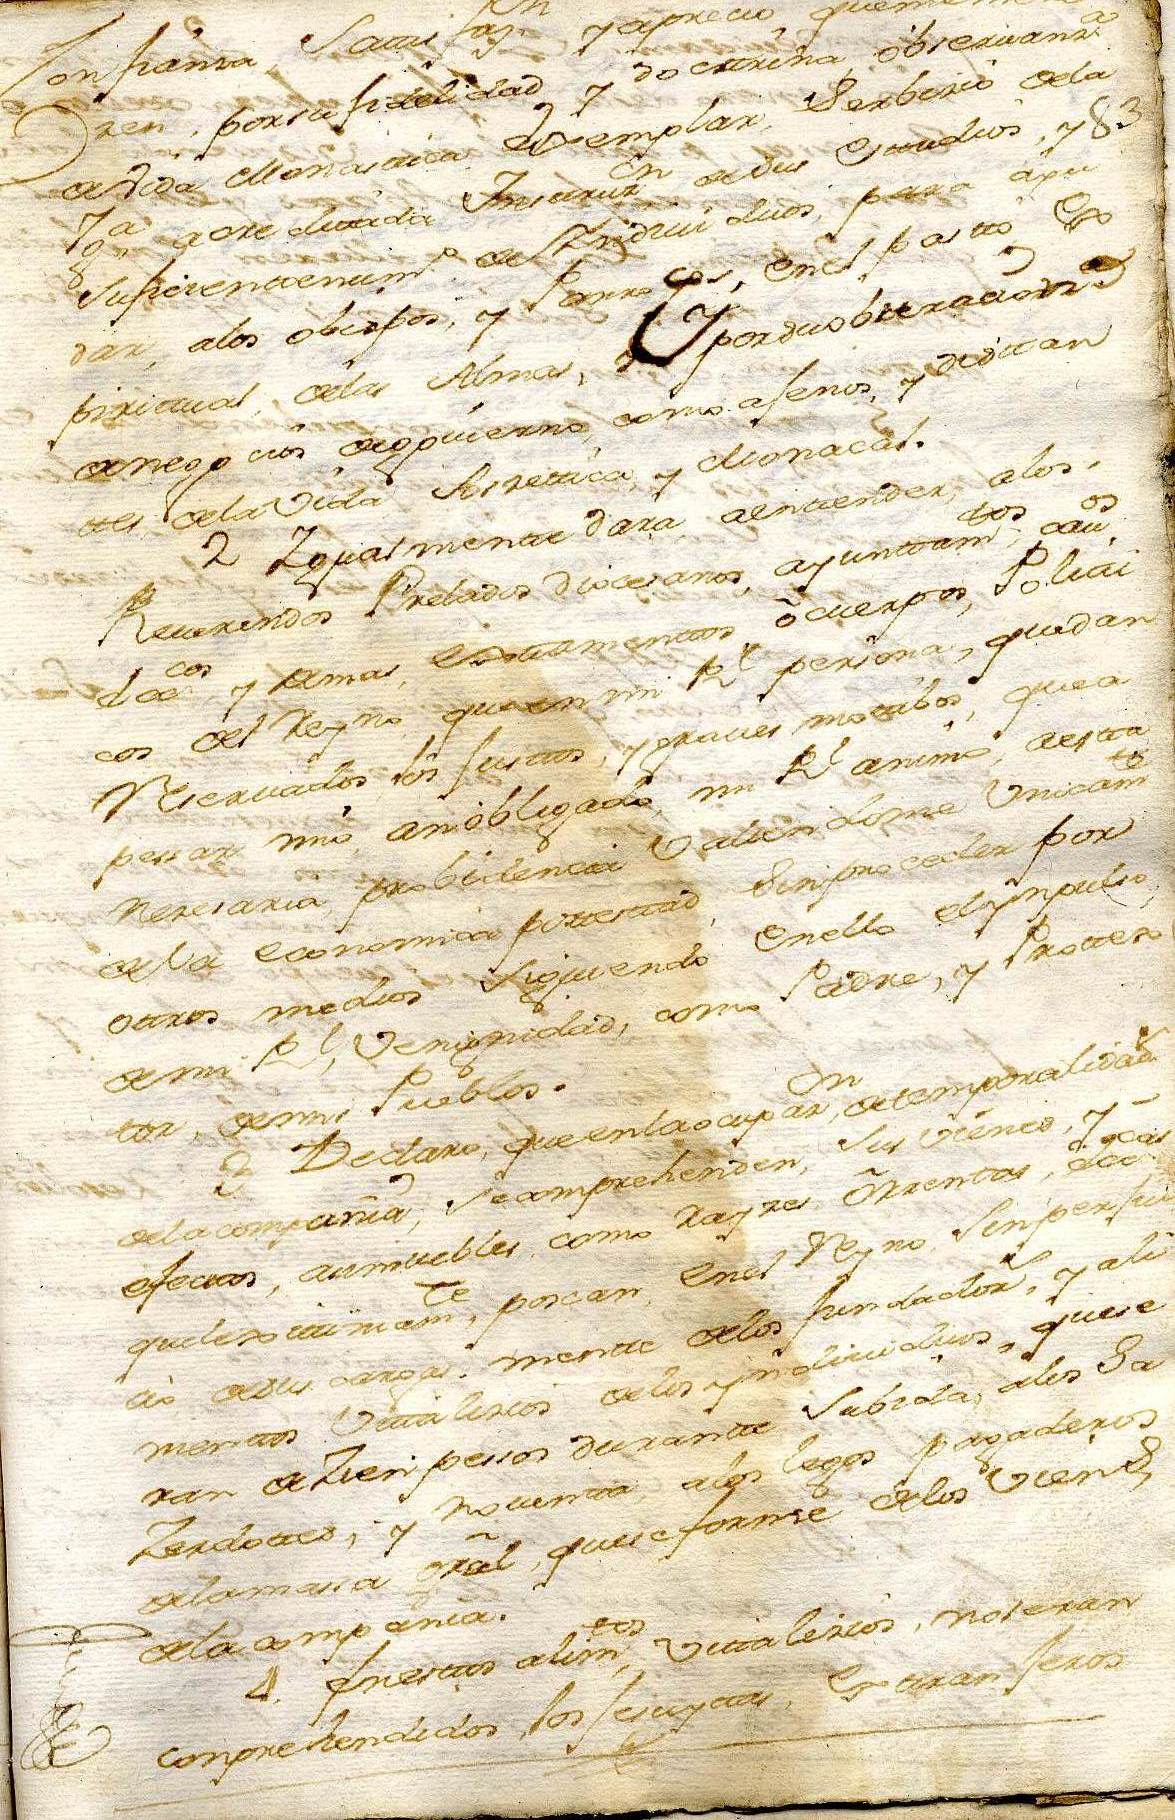 Confianza, Satisfaz.on y aprecio que me me
Dren, por su fidelidad y doctrina observanz.a
de vida Monastica exemplar, Serbicio de la
Yg.a acreditada Instruz.on de sus estudios, y 83
suficiente num.o de Individuos para ayu
dar, a los obispos, y Parrocos, en el pasto Es
piritual, de las Almas, y por su abstracción
de negocios de govierno, como agenos, y distan
tes, de la vida Ascetica, y Monacal.
2 Igualmente dara, a entender, a los,
Reverendos Prelados diocesanos, ayuntam.tos cavi.os
dos ecc.cos y demas, estamentos, ō cuerpos, Politi
cos del Reyno, que en mi R.l persona, quedan
Reservados los justos, y graves motibos, que a
pessar mio an obligado, mi R.l animo, a esta
Necesaria, probidencia Valiendome Unicam.te
de la economica potestad, sin proceder por
otros medios siguiendo en ello el ynpulso,
de mi R.l, Venignidad, como Padre, y Protec
tor, de mis Pueblos.
3 Declaro, que en la ocupaz.on, de temporalidad.s
de la compañia, se comprehenden, sus vienes, y
efectos, asi muebles, como Rayzes, ō Rentas, ecc.cas
que lexitimam.te, poscan, en el Reyno, sin perjui
cio de sus cargas, mente de los fundador.s, y ali
mentos Vitalicios de los yndividuos, que se
ran de Zien pessos durante su bida, a los Sa
Zerdotes, y noventa a los legos pagaderos
de la massa gral, que se forme de los Vienes,
de la compañia.
4. En estos alim.tos Vitalicios, no seran
conprehendidos, los Jesuytas, Extranjeros